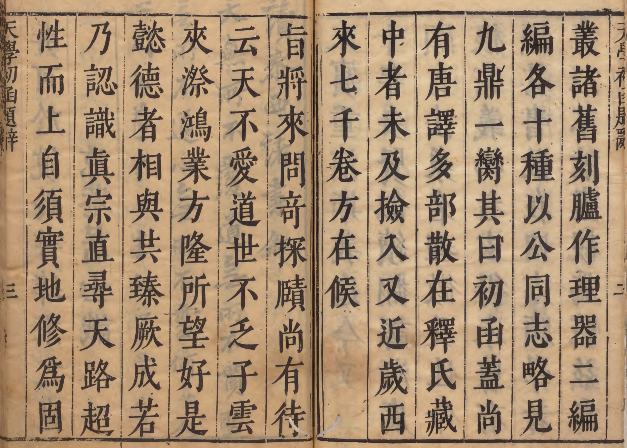 天學初函題辭
叢諸舊刻臚作理器二編
編各十種以公同志略見
九鼎一臠其曰初函蓋尚
有唐譯多部散在釋氏藏
中者未及撿入又近歲西
來七千卷方在候
旨將來問竒探賾尚有待
云天不愛道世不乏子雲
夾漈鴻業方隆所望好是
懿德者相與共臻厥成若
乃認識眞宗直尋天路超
性而上自須實地修爲固
天學初函題辭
三